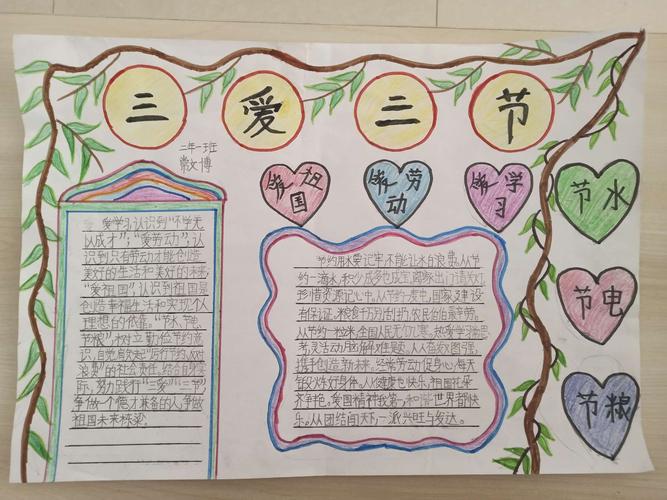 三爱三节
二年一班
常文博
爱祖国
爱劳动
爱学习
节水
节电
节粮
爱学习,认识到“不学无
以成才”;“爱劳动”,认
识到只有劳动才能创造
美好的生活和美好的未来;
“爱祖国”,认识到祖国是
创造幸福生活和实现个人
理想的依靠。“节水、节电、
节粮”,树立勤俭节约意
识,自觉肩负起“厉行节约,反对
浪费”的社会责任。结合自身实
际,努力践行“三爱”“三节”,
争做一个德才兼备的人,争做
祖国未来栋梁。
节约用水要记牢,不能让水白浪费,从节
约一滴水,积少成多也成宝,随家出门请关灯,
珍惜资源记心中,从节约一度电,国家建设
有保证。粮食千万别扔,农民伯伯最辛劳。
从节约一粒米,全国人民无饥寒。热爱学习勤思
考,灵活动脑解难题。人人奋发图强,
携手创造新未来。经常劳动促身心,每天
锻炼好身体。从人健康也快乐,祖国花朵
齐争艳。爱国精神我第一,和谐世界都快
乐。从团结闯天下,一派兴旺与发达。